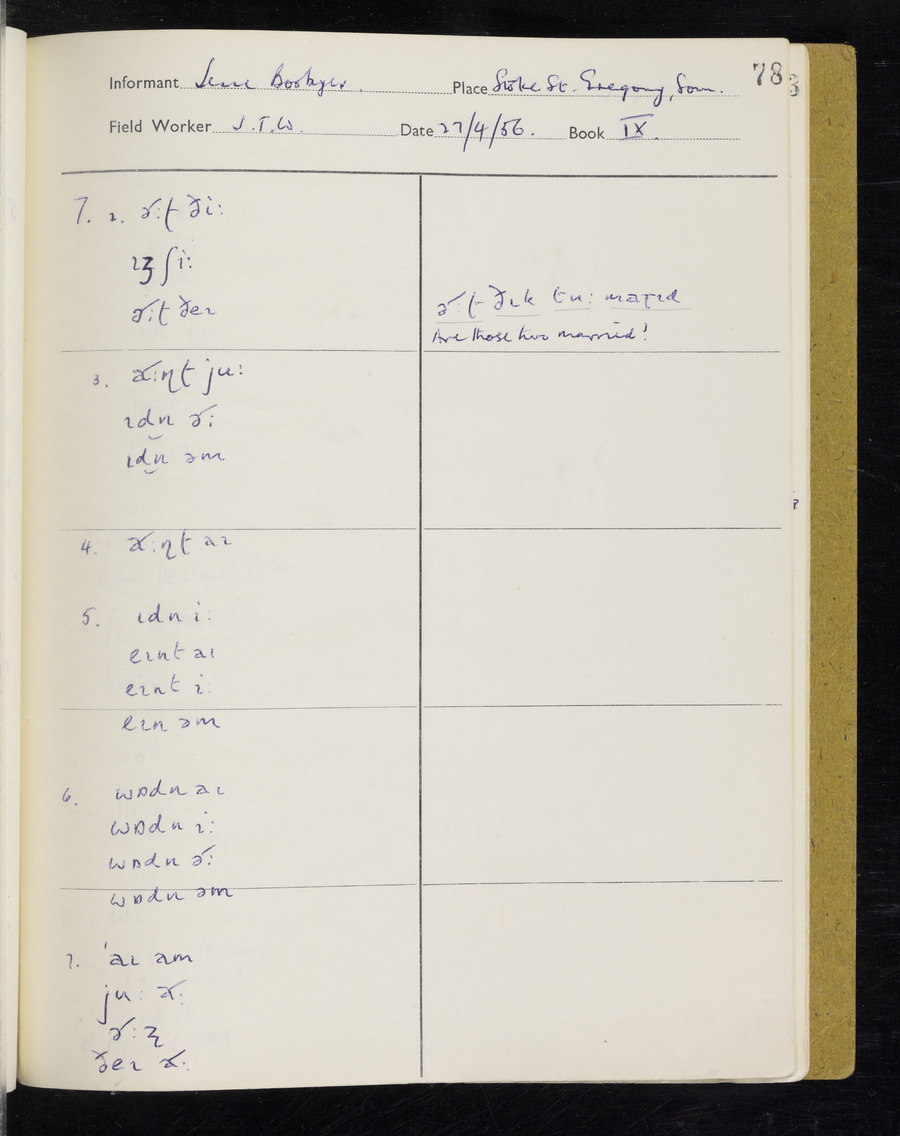 78
Informant Jesse Boobyer. Place Stoke St. Gregory, Som.
Field Worker J.T.W. Date 27/4/56. Book IX.
7. 2. ɚ:ʈ ði:
ɪʒ ʃi:
ɚ:ʈ ðeɪ
ɚ:ʈ ðɪk tu: maɽɪd
Are those two married?
3. ɑ˞:ɳʈ ju:
ɪdn ɚ:
ɪdn̮ əm
4. ɑ˞:ɳʈ aɪ
5. ɪdn i:
eɪnt aɪ
eɪnt i:
eɪn əm
6. wɒdn aɪ
wɒdn i:
wɒdn ɚ:
wɒdn əm
7. ˈaɪ am
ju: ɑ˞:
ɚ:ʐ
ðeɪ ɑ˞: